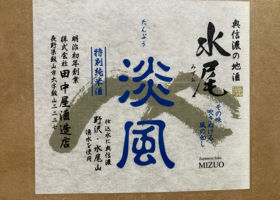 奥信濃の地酒
水尾
みずお
その味、
吹きぬける
風の如し
Japanese Sake
MIZUO
淡風
たんぷう
特別純米酒
仕込水に奥信濃
野沢・水尾山
湧水を使用
明治初年創業
株式会社
田中屋酒造店
長野県飯山市大字飯山二二二七